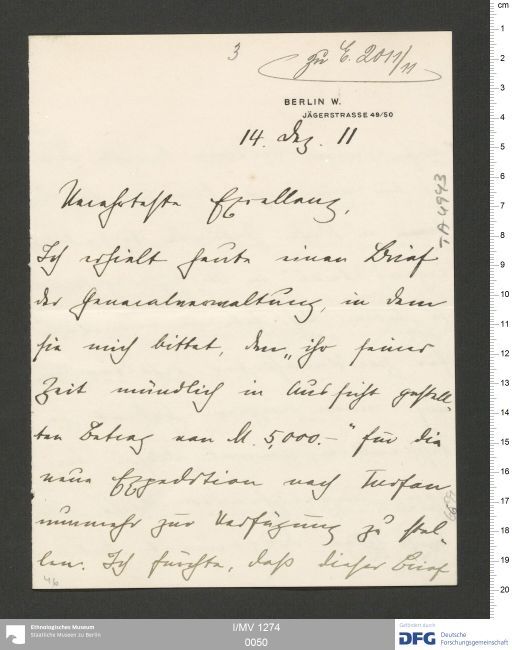 3
zu E. 2011/11
BERLIN W.
JÄGERSTRASSE 49/50
14. Dez. 11
TA 4943
Verehrteste Exzellenz,
Ich erhielt heute einen Brief
der Generalverwaltung, in dem
sie mich bittet, den „ihr seiner
Zeit mündlich in Aussicht gestell-
ten Betrag von M. 5,000.–" für die
neue Expedition nach Turfan
nunmehr zur Verfügung zu stel-
len. Ich fürchte, daß dieser Brief
46
Ethnologisches Museum
Staatliche Museen zu Berlin
I/MV 1274
0050
Gefördert durch
DFG Deutsche
Forschungsgemeinschaft
cm
1
2
3
4
5
6
7
8
9
10
11
12
13
14
15
16
17
18
19
20